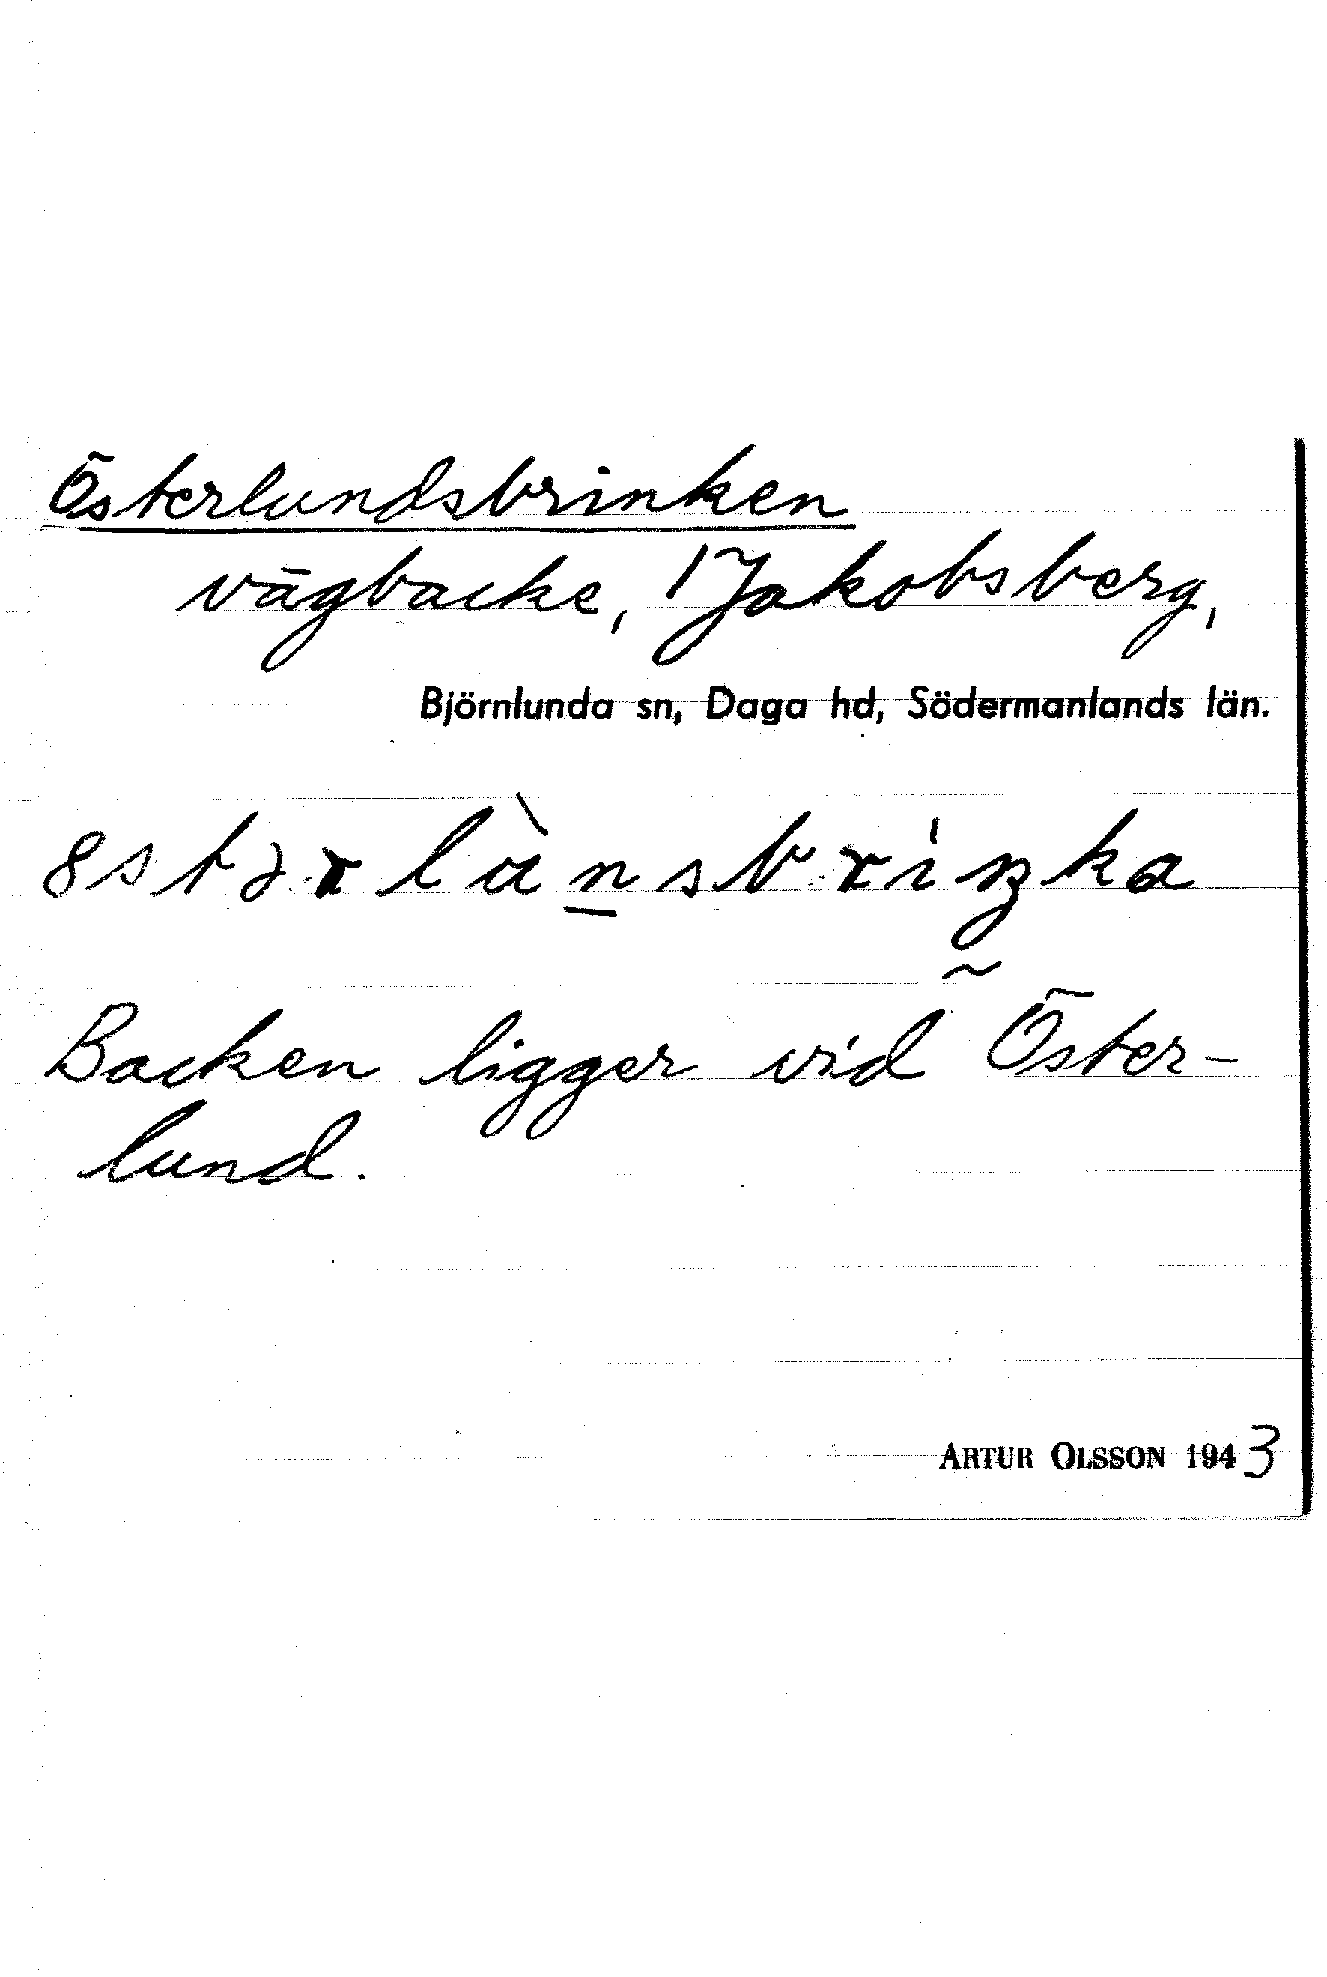 Österlundsbrinken
vägbacke, Jakobsberg,
Björnlunda sn, Daga hd, Södermanlands län.
Backen ligger vid Öster-
lund.
ARTUR OLSSON 1943